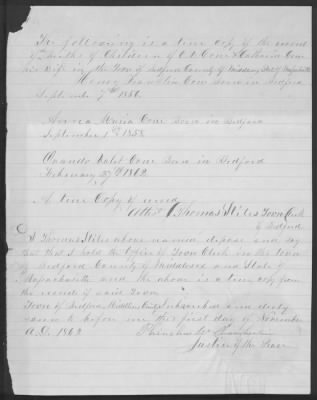 The following is a true copy of the record
of Births of Children of
his wife in the Town of Bedford County of Middlesex State of Massachusetts
Henry Franklin born in Bedford
September 7th 1856.
Anna Maria born in Bedford
September 1st 1858
born in Bedford
February 27th 1862
A true Copy of record
Attest Thomas Stiles Town Clerk
of Bedford
I Thomas Stiles above named, depose and say
that I hold the Office of Town Clerk in the town
of Bedford County of Middlesex and State of
Massachusetts and the above is a true copy from
the records of said Town
Town of Bedford, Middlesex Subscribed and duly
sworn to before me this first day of November
A.D. 1862
Justice of the Peace